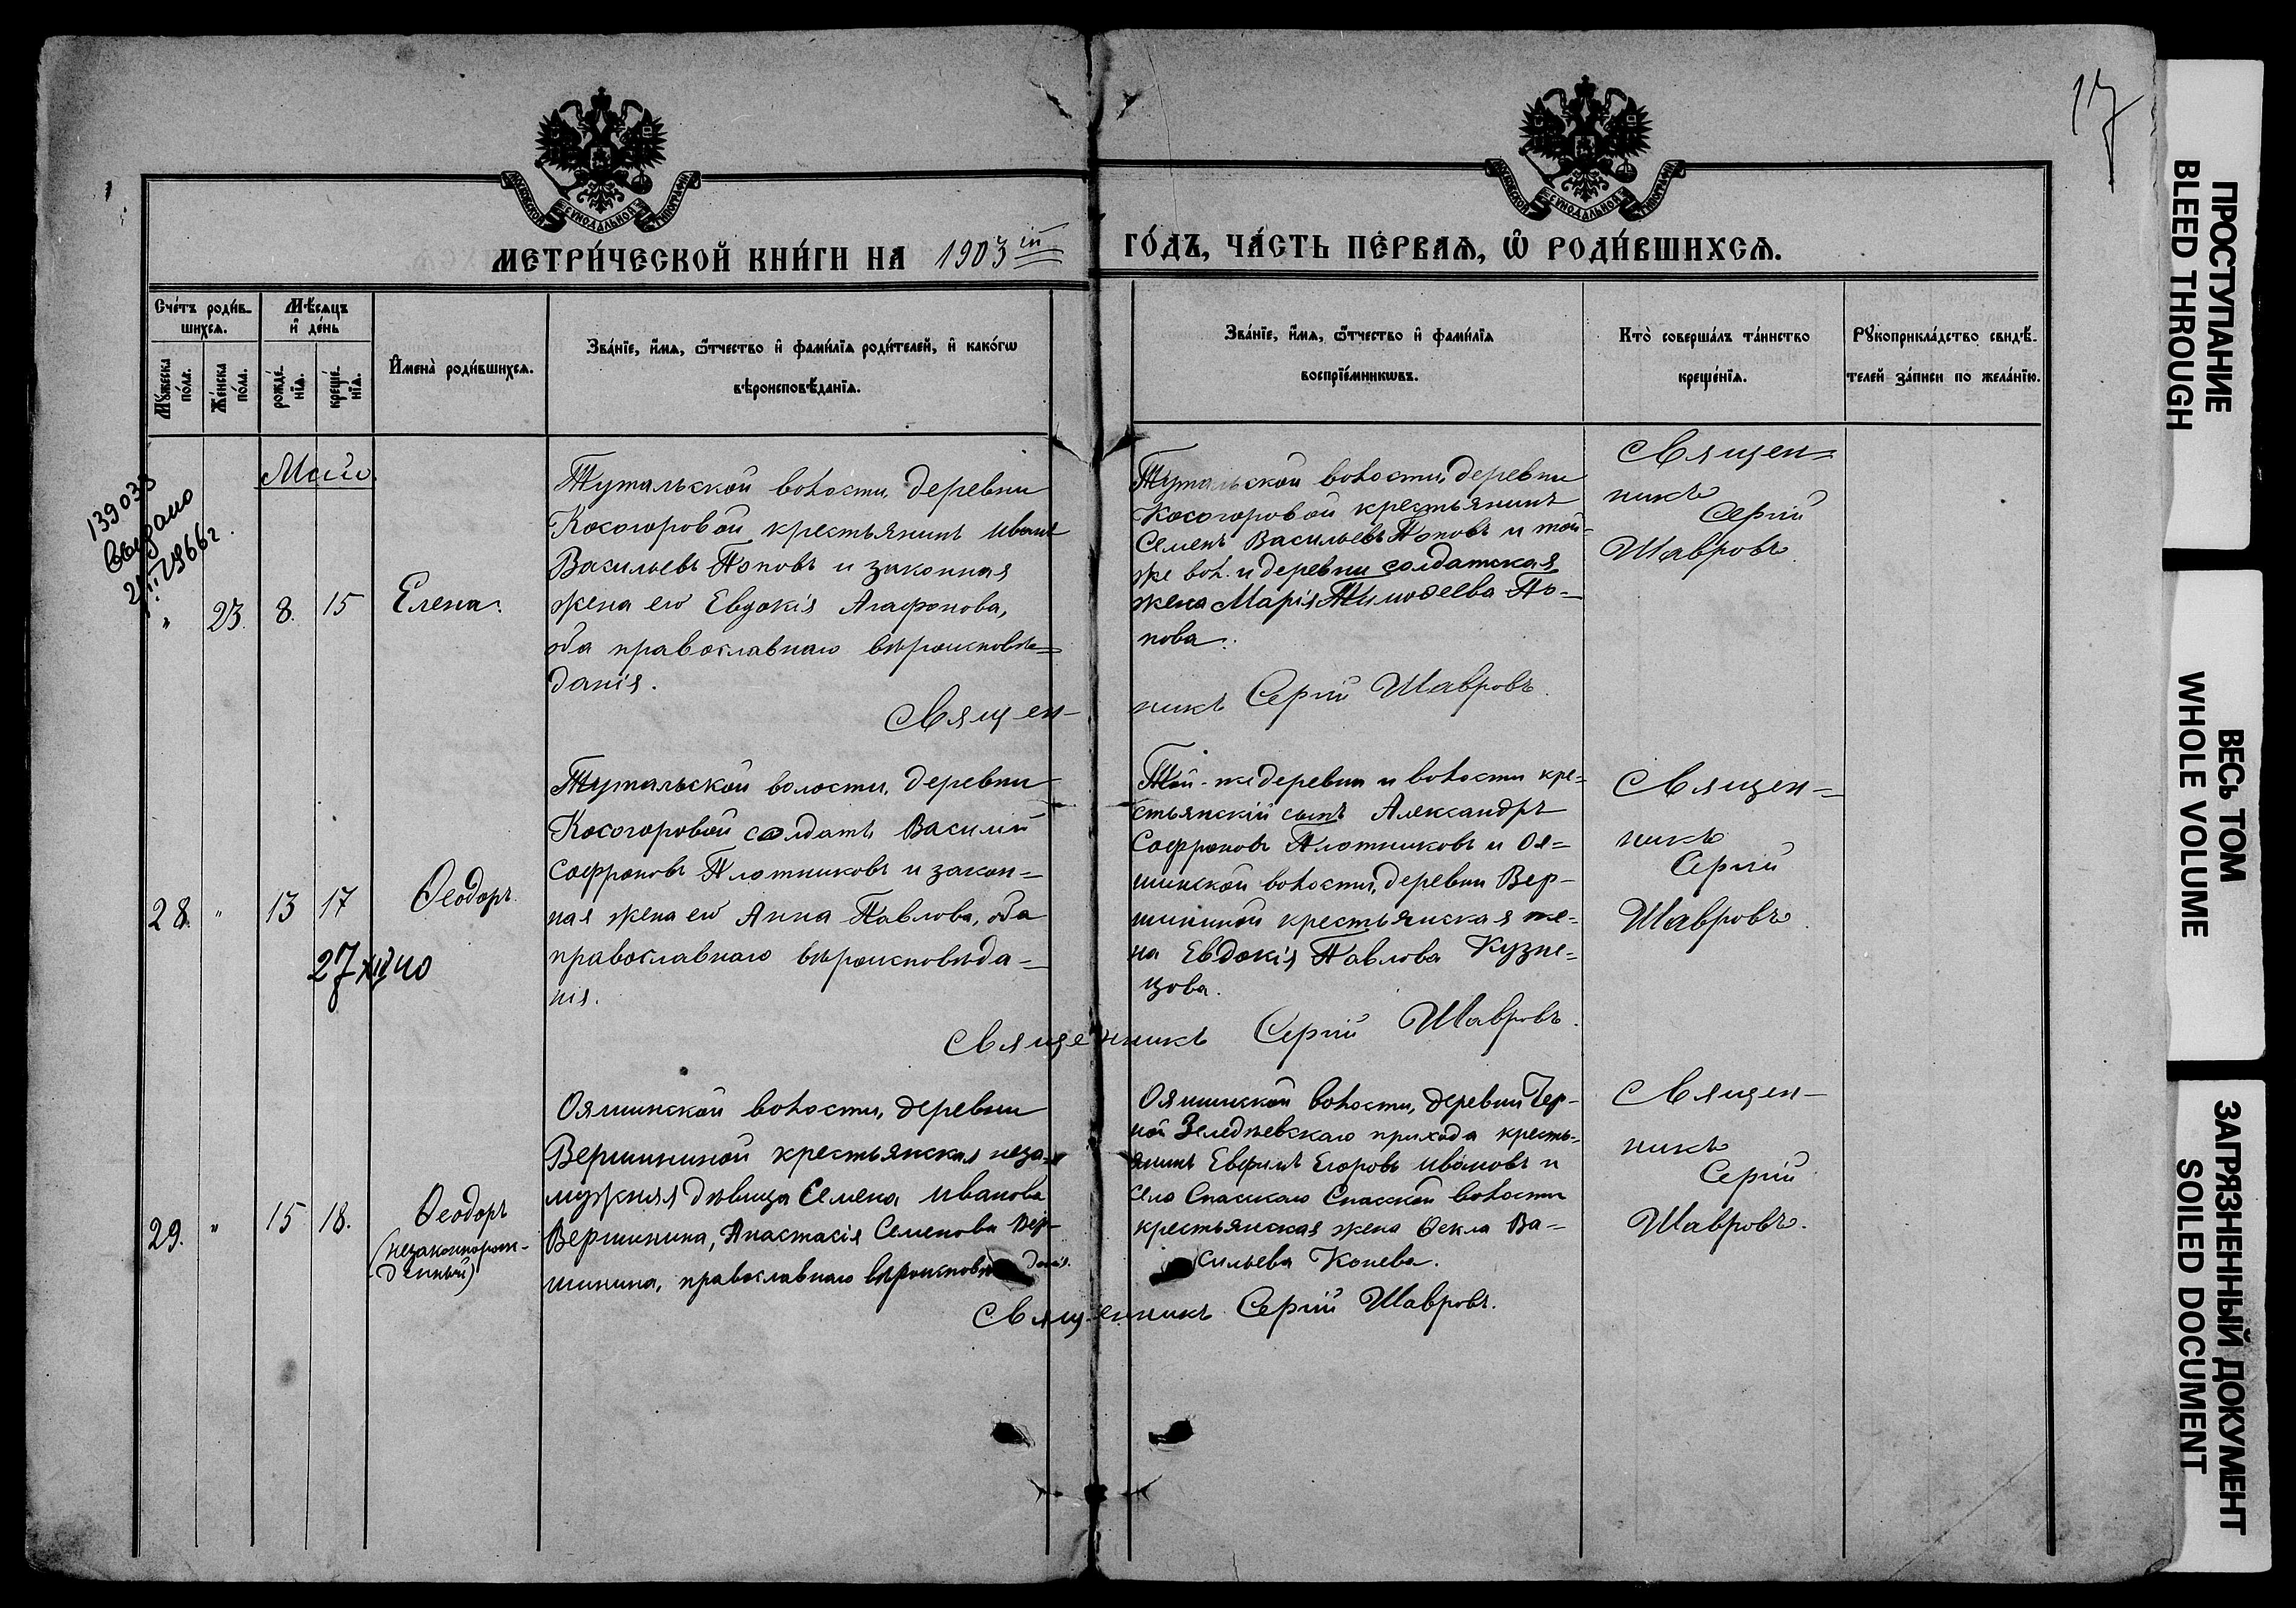 17
МОСКОВСКОЙ СѴНОДАЛЬНОЙ ТИПОГРАФІИ
МОСКОВСКОЙ СѴНОДАЛЬНОЙ ТИПОГРАФІИ
МЕТРИ́ЧЕСКОЙ КНИ́ГИ НА 1903 ій
ГО́ДЪ, ЧА́СТЬ ПЕ́РВАѦ, Ѡ҆ РОДИ́ВШИХСѦ.
Сче́тъ роди́в-
шихсѧ.
Мꙋ́жеска
по́ла.
Же́нска
по́ла.
Мѣ́сѧцъ
и҆ де́нь
рожде́-
нїѧ.
креще́-
нїѧ.
И҆мена̀ роди́вшихсѧ.
Зва́нїе, и҆́мѧ, ѻ҆́тчество и҆ фами́лїѧ роди́телей, и҆ како́гѡ
вѣроисповѣ́данїѧ.
Зва́нїе, и҆́мѧ, ѻ҆́тчество и҆ фами́лїѧ
воспрїе́мникѡвъ.
Кто̀ соверша́лъ та́инство
креще́нїѧ.
Рꙋкоприкла́дство свидѣ́-
телей за́писи по жела́нїю.
139033
выдано
1966г.
Май.
" 23. 8. 15
Елена.
Тутальской волости, деревни
Косогоровой крестьянинъ Иванъ
Васильевъ Поповъ и законная
жена его Евдокія Агафонова,
оба православнаго вѣроисповѣ=
данія.
Тутальской волости, деревни
Косогоровой крестьянинъ
Семенъ Васильевъ Поповъ и той-
же вол. и деревни солдатская
жена Марія Тимоѳеева По=
пова.
Священ=
никъ
Сергій
Шавровъ.
Священ-
никъ Сергій Шавровъ.
28. " 13 17
27 XII 40
Ѳеодоръ.
Тутальской волости, деревни
Косогоровой солдатъ Василій
Софроновъ Плотниковъ и закон=
ная жена его Анна Павлова, оба
православнаго вѣроисповѣда=
нія.
Той-же деревни и волости кре=
стьянскій сынъ Александръ
Софроновъ Плотниковъ и Оя=
шинской волости, деревни Вер-
шининой крестьянская же=
на Евдокія Павлова Кузне=
цова.
Священ=
никъ
Сергій
Шавровъ.
Священникъ Сергій Шавровъ.
29. " 15 18.
Ѳеодоръ
(незаконнорож-
денный)
Ояшинской волости, деревни
Вершининой крестьянская неза=
мужняя дѣвица Семена Иванова
Вершинина, Анастасія Семенова Вер-
шинина, православнаго вѣроисповѣданія.
Ояшинской волости, деревни Чер-
ной Зеледѣевскаго прихода кресть=
янинъ Евфимъ Егоровъ Ивановъ и
села Спасскаго Спасской волости
крестьянская жена Ѳекла Ва=
сильева Конева.
Священ-
никъ
Сергій
Шавровъ.
Священникъ Сергій Шавровъ.
ПРОСТУПАНИЕ
BLEED THROUGH
ВЕСЬ ТОМ
WHOLE VOLUME
ЗАГРЯЗНЕННЫЙ ДОКУМЕНТ
SOILED DOCUMENT